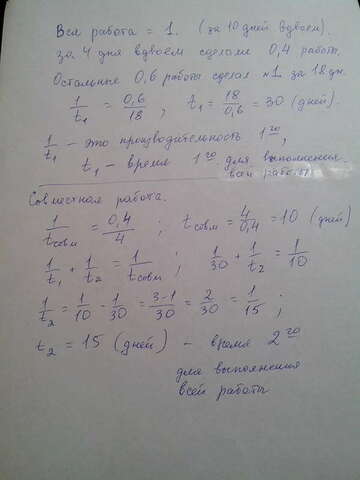 Вся работа = 1. (за 10 дней вдвоём).
за 4 дня вдвоём сделали 0,4 работы.
Остальные 0,6 работы сделал №1 за 18 дн.
1/t₁ = 0,6/18 ; t₁ = 18/0,6 = 30 (дней).
1/t₁ - это производительность 1го,
t₁ - время 1го для выполнения
всей работы
Совместная работа.
1/tсовм = 0,4/4 ; tсовм = 4/0,4 = 10 (дней)
1/t₁ + 1/t₂ = 1/tсовм ; 1/30 + 1/t₂ = 1/10
1/t₂ = 1/10 - 1/30 = 3-1/30 = 2/30 = 1/15 ;
t₂ = 15 (дней) - время 2го
для выполнения
всей работы